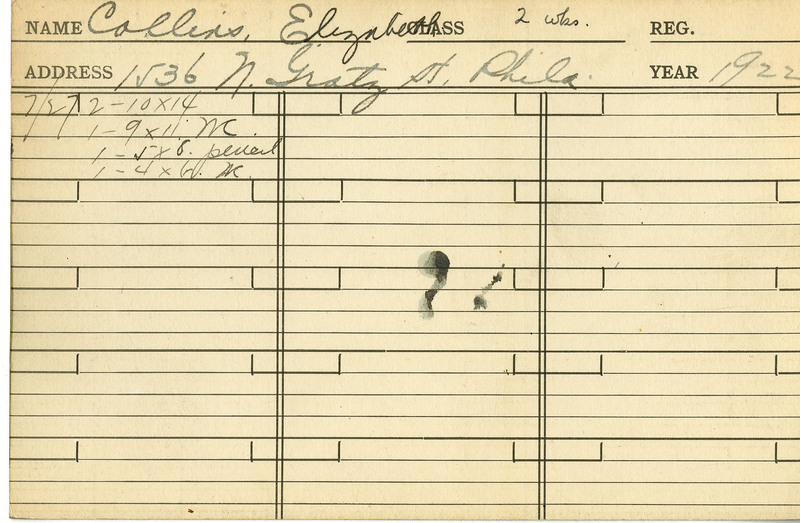 NAME Collins, Elizabeth CLASS 2 wks. REG.
ADDRESS 1536 N. Gratz St, Phila. YEAR 1922
7/27 2-10x14
1-9x11. WC.
1-5x8. pencil
1-4x6. WC.